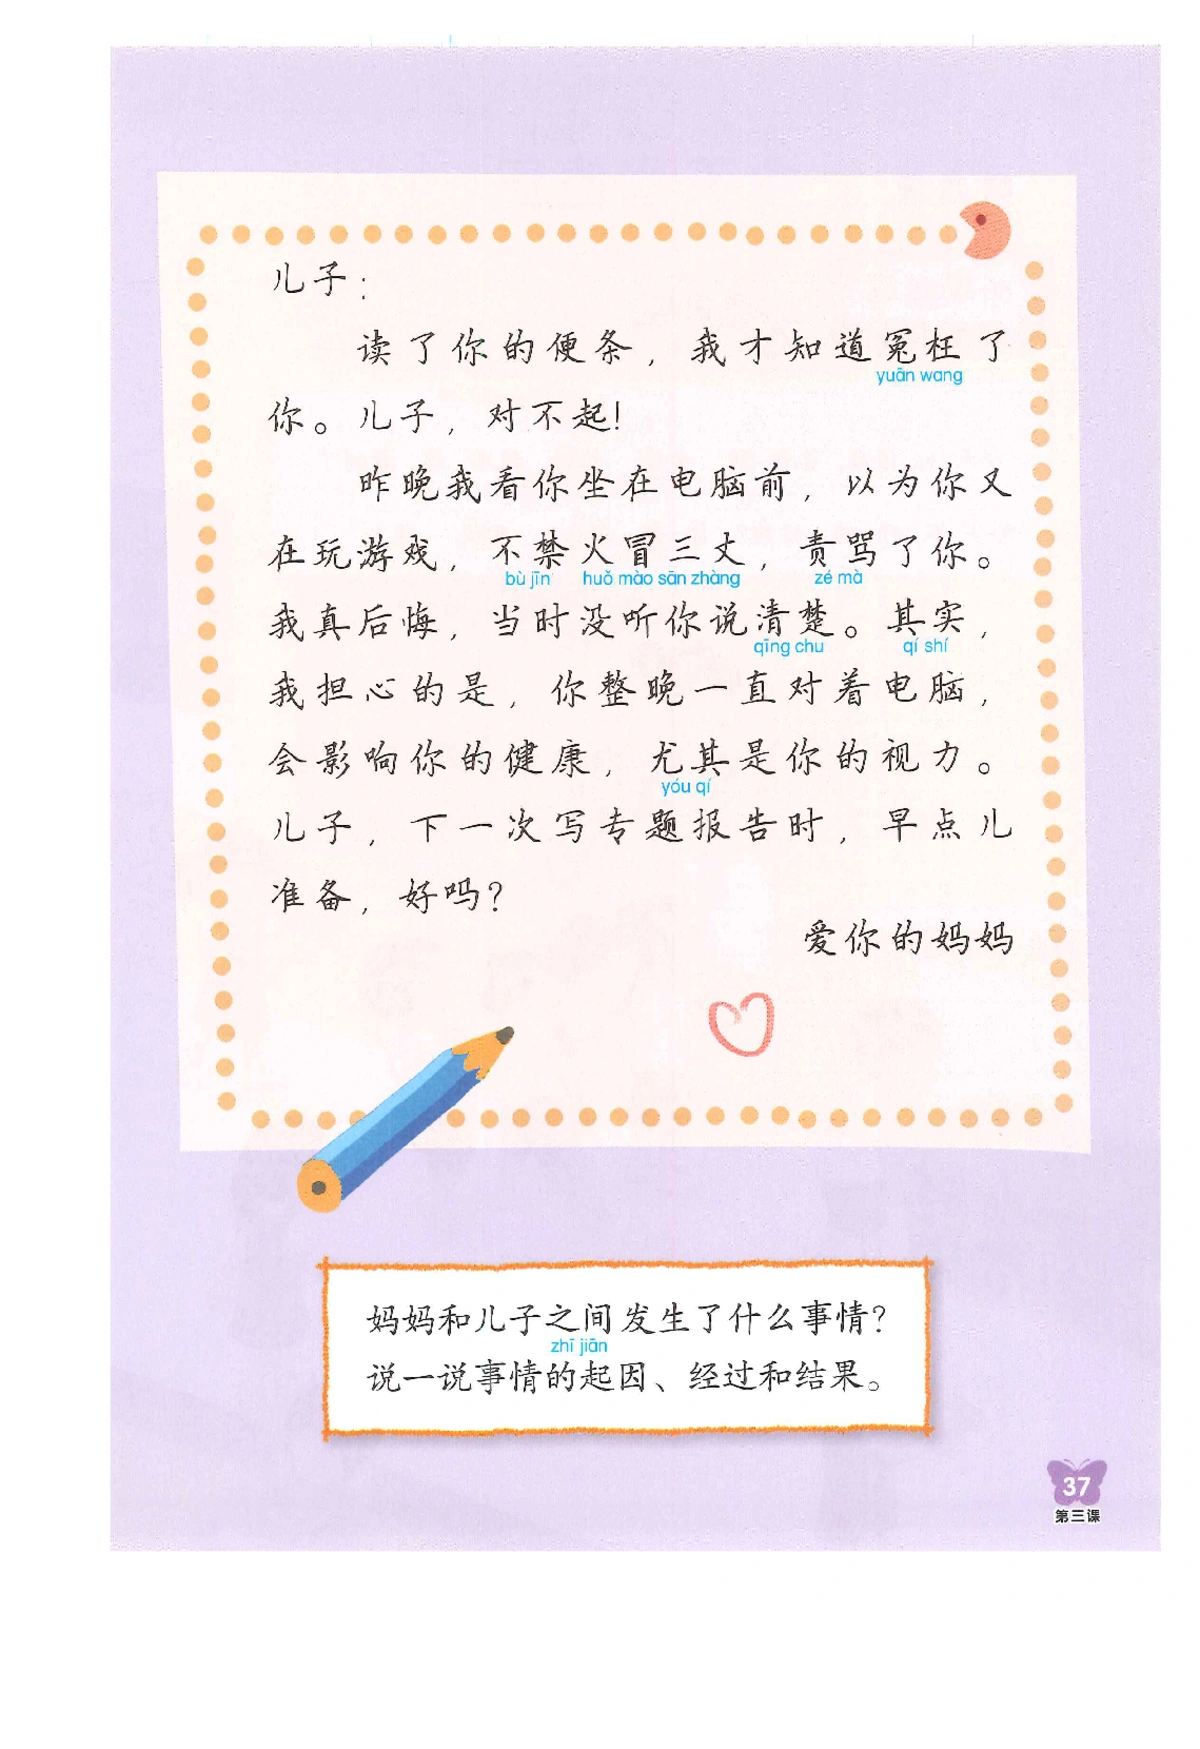 儿子：
读了你的便条，我才知道冤枉了
yuān wang
你。儿子，对不起！
昨晚我看你坐在电脑前，以为你又
在玩游戏，不禁火冒三丈，责骂了你。
bù jīn huǒ mào sān zhàng zé mà
我真后悔，当时没听你说清楚。其实，
qīng chu qí shí
我担心的是，你整晚一直对着电脑，
会影响你的健康，尤其是你的视力。
yóu qí
儿子，下一次写专题报告时，早点儿
准备，好吗？
爱你的妈妈
妈妈和儿子之间发生了什么事情？
zhī jiān
说一说事情的起因、经过和结果。
37
第三课